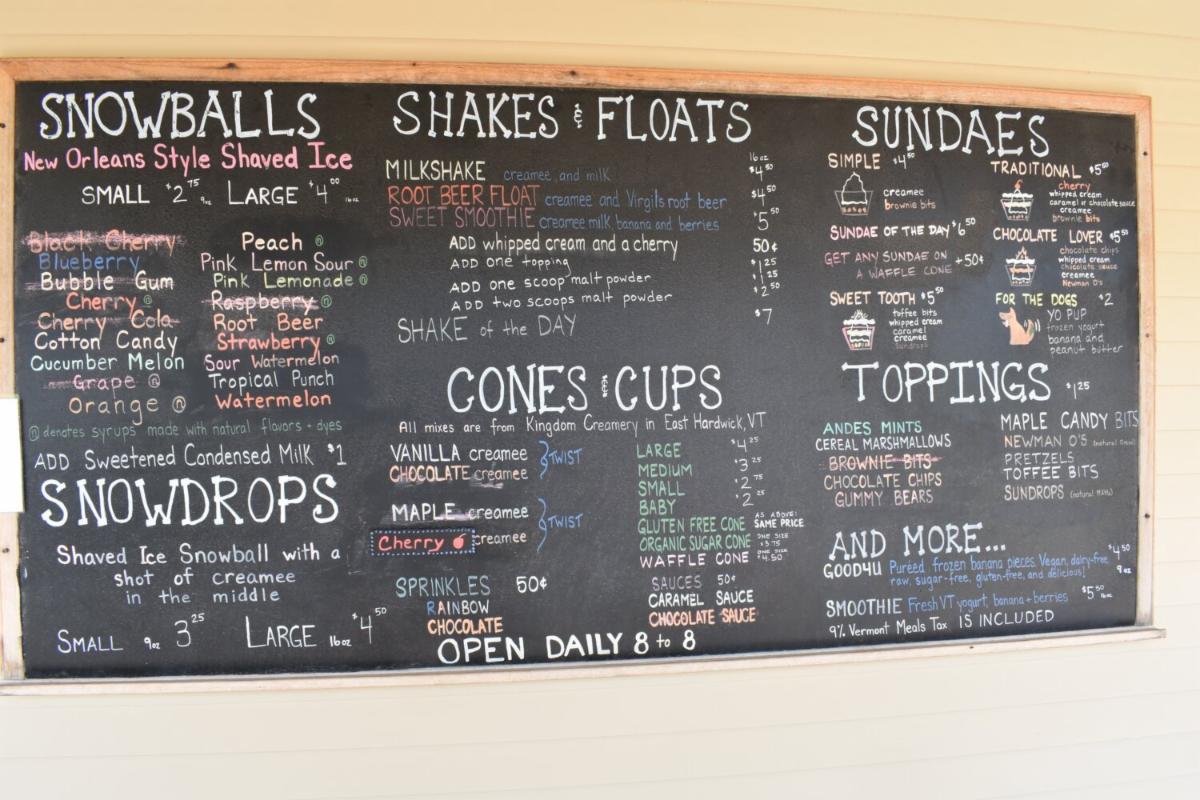 SNOWBALLS
New Orleans Style Shaved Ice
SMALL $2.75 9oz LARGE $4.00 16oz
Black Cherry
Blueberry
Bubble Gum
Cherry ⓝ
Cherry Cola
Cotton Candy
Cucumber Melon
Grape ⓝ
Orange ⓝ
Peach ⓝ
Pink Lemon Sour ⓝ
Pink Lemonade ⓝ
Raspberry ⓝ
Root Beer
Strawberry ⓝ
Sour Watermelon
Tropical Punch
Watermelon
ⓝ denotes syrups made with natural flavors + dyes
ADD Sweetened Condensed Milk $1
SNOWDROPS
Shaved Ice Snowball with a
shot of creamee
in the middle
SMALL 9oz 3.25 LARGE 16oz $4.50
SHAKES & FLOATS
16oz
MILKSHAKE creamee and milk $4.50
ROOT BEER FLOAT creamee and Virgils root beer $4.50
SWEET SMOOTHIE creamee milk, banana and berries $5.50
ADD whipped cream and a cherry 50¢
ADD one topping $1.25
ADD one scoop malt powder $1.25
ADD two scoops malt powder $2.50
SHAKE of the DAY $7
CONES & CUPS
All mixes are from Kingdom Creamery in East Hardwick, VT
VANILLA creamee
CHOCOLATE creamee
TWIST
MAPLE creamee
Cherry creamee
TWIST
SPRINKLES 50¢
RAINBOW
CHOCOLATE
LARGE $4.25
MEDIUM $3.25
SMALL $2.75
BABY $2.25
GLUTEN FREE CONE AS ABOVE: SAME PRICE
ORGANIC SUGAR CONE ONE SIZE $3.75
WAFFLE CONE ONE SIZE $4.50
SAUCES 50¢
CARAMEL SAUCE
CHOCOLATE SAUCE
OPEN DAILY 8 to 8
SUNDAES
SIMPLE $4.50
creamee
brownie bits
SUNDAE OF THE DAY $6.50
GET ANY SUNDAE ON
A WAFFLE CONE +50¢
SWEET TOOTH $5.50
toffee bits
whipped cream
caramel
creamee
Sundrops
TRADITIONAL $5.50
cherry
whipped cream
caramel or chocolate sauce
creamee
brownie bits
CHOCOLATE LOVER $5.50
chocolate chips
whipped cream
chocolate sauce
creamee
Newman O's
FOR THE DOGS $2
YO PUP
frozen yogurt
banana and
peanut butter
TOPPINGS $1.25
ANDES MINTS
CEREAL MARSHMALLOWS
BROWNIE BITS
CHOCOLATE CHIPS
GUMMY BEARS
MAPLE CANDY BITS
NEWMAN O'S
PRETZELS
TOFFEE BITS
SUNDROPS
AND MORE...
GOOD4U Puréed frozen banana pieces. Vegan, dairy-free, $4.50
raw, sugar-free, gluten-free, and delicious! 9oz
SMOOTHIE Fresh VT yogurt, banana + berries $5.50 16oz
9% Vermont Meals Tax IS INCLUDED